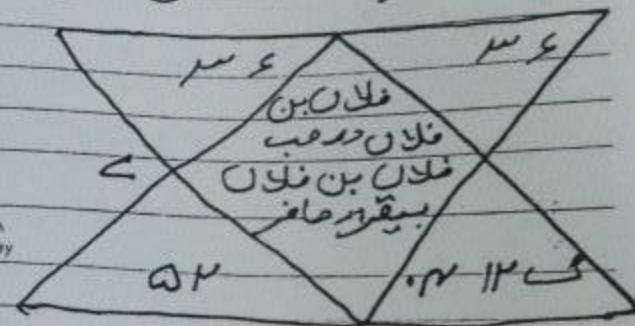 ۳۶ ۳۶
فلاں بن
فلاں در حب
فلاں بن فلاں
بیقرار حاضر
۵۲